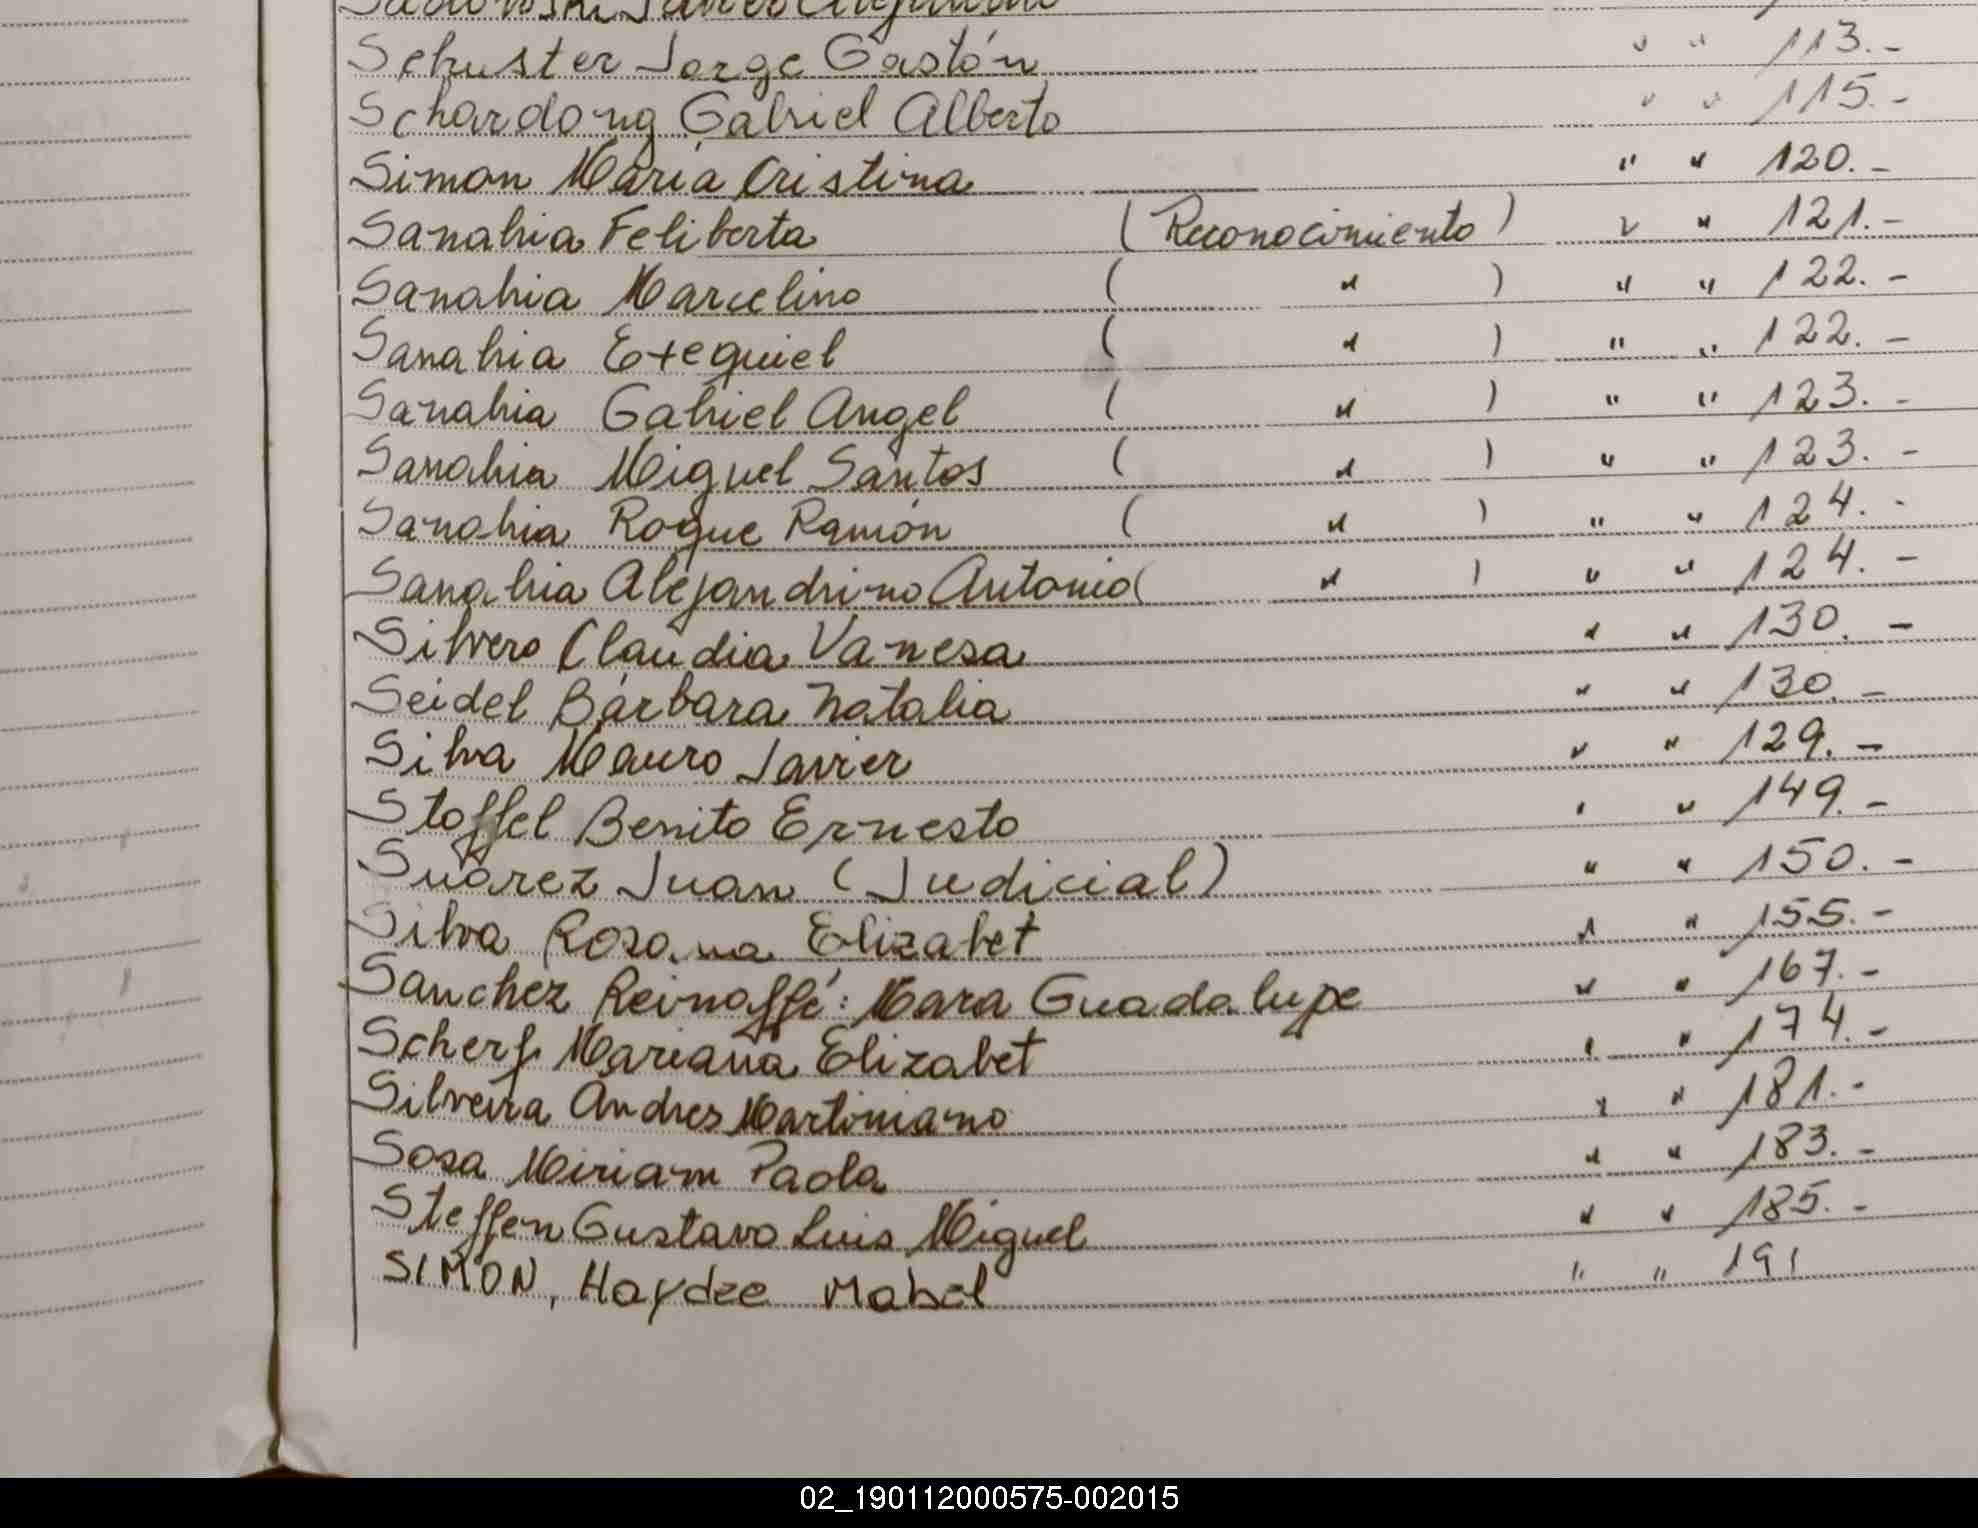 Schuster Jorge Gastón " " 113.-
Schardong Gabriel Alberto " " 115.-
Simon María Cristina " " 120.-
Sanabria Feliberta (Reconocimiento) " " 121.-
Sanabria Marcelino ( " ) " " 122.-
Sanabria Exequiel ( " ) " " 122.-
Sanabria Gabriel Angel ( " ) " " 123.-
Sanabria Miguel Santos ( " ) " " 123.-
Sanabria Roque Ramón ( " ) " " 124.-
Sanabria Alejandrino Antonio ( " ) " " 124.-
Silvero Claudia Vanesa " " 130.-
Seidel Bárbara Natalia " " 130.-
Silva Mauro Javier " " 129.-
Stoffel Benito Ernesto " " 149.-
Suárez Juan (Judicial) " " 150.-
Silva Rosana Elizabet " " 155.-
Sanchez Reinaffé: Mara Guadalupe " " 167.-
Scherf Mariana Elizabet " " 174.-
Silveira Andres Martiniano " " 181.-
Sosa Miriam Paola " " 183.-
Steffen Gustavo Luis Miguel " " 185.-
SIMON, Haydee Mabel " " 191
02_190112000575-002015